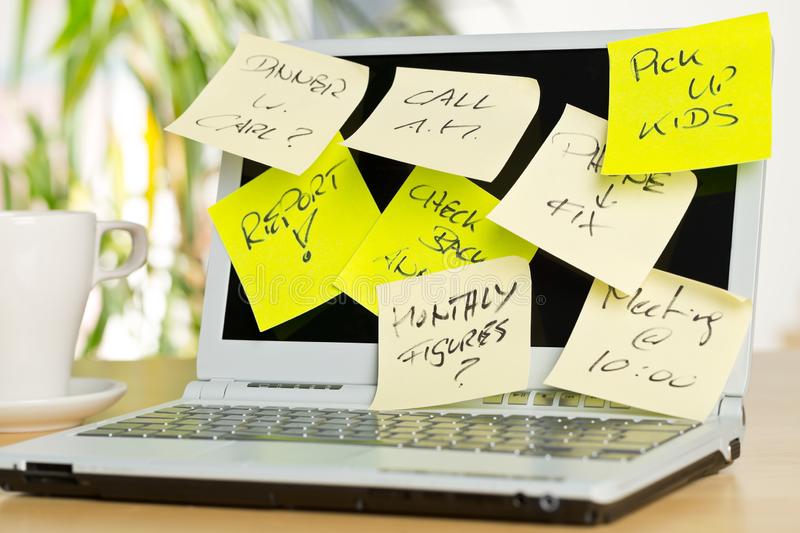 DINNER
W.
CARL?
CALL
A.M.
PICK
UP
KIDS
PHONE
↓
FIX
REPORT
!
CHECK
BACK
MONTHLY
FIGURES
?
Meeting
@
10:00
dreamstime